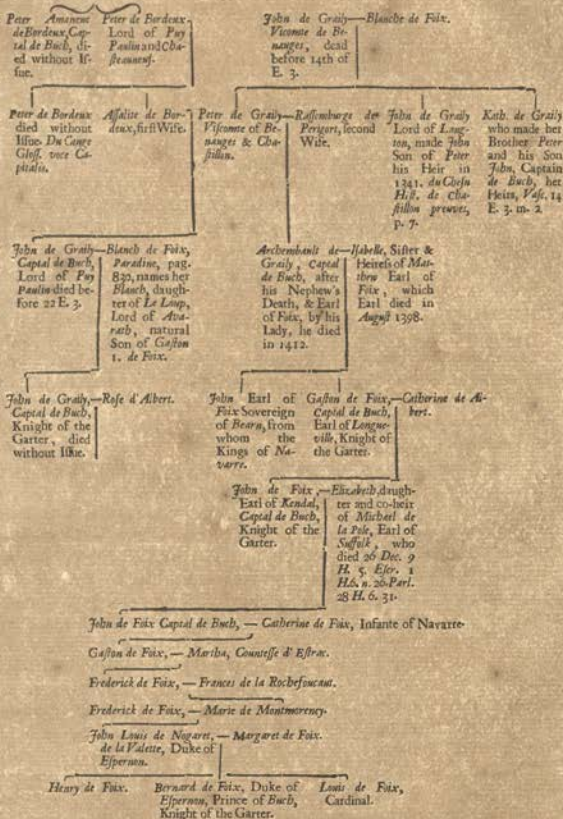 Peter Amaneut
de Bordeux, Cap-
tal de Buch, di-
ed without Is-
sue.
Peter de Bordeux
Lord of Puy
Paulin and Cha-
steauneuf.
John de Graily—Blanche de Foix.
Vicomte de Be-
nanges, dead
before 14th of
E. 3.
Peter de Bordeux
died without
Issue. Du Cange
Gloss. voce Ca-
pitalis.
Assalite de Bor-
deux, first Wife.
Peter de Graily—Rassemburge de
Viscomte of Be-
nanges & Cha-
stillon.
Perigort, second
Wife.
John de Graily
Lord of Langton, made John
Son of Peter
his Heir in
1341. du Chesn
Hist. de Cha-
stillon preuves,
p. 7.
Kath. de Graily
who made her
Brother Peter
and his Son
John, Captain
de Buch, her
Heirs, Vasc. 14
E. 3. m. 2
John de Graily—Blanch de Foix,
Captal de Buch,
Lord of Puy
Paulin died be-
fore 22 E. 3.
Paradine, pag.
830, names her
Blanch, daugh-
ter of Le Loup,
Lord of Ava-
rath, natural
Son of Gaston
1. de Foix.
Archembault de—Isabelle, Sister &
Graily, Captal
de Buch, after
his Nephew's
Death, & Earl
of Foix, by his
Lady, he died
in 1412.
Heiress of Mat-
thew Earl of
Foix, which
Earl died in
August 1398.
John de Graily,—Rose d'Albert.
Captal de Buch,
Knight of the
Garter, died
without Issue.
John Earl of
Foix Sovereign
of Bearn, from
whom the
Kings of Na-
varre.
Gaston de Foix,—Catherine de Al-
Captal de Buch,
Earl of Longue-
ville, Knight of
the Garter.
bert.
John de Foix,—Elizabeth, daugh-
Earl of Kendal,
Captal de Buch,
Knight of the
Garter.
ter and co-heir
of Michael de
la Pole, Earl of
Suffolk, who
died 26 Dec. 9
H. 5. Escr. 1
H.6. n. 26. Parl.
28 H. 6. 31.
John de Foix Captal de Buch, — Catherine de Foix, Infante of Navarre.
Gaston de Foix, — Martha, Countesse d'Estrac.
Frederick de Foix, — Frances de la Rochefoucaut.
Frederick de Foix, — Marie de Montmorency.
John Louis de Nogaret, — Margaret de Foix.
de la Valette, Duke of
Espernon.
Henry de Foix.
Bernard de Foix, Duke of
Espernon, Prince of Buch,
Knight of the Garter.
Louis de Foix,
Cardinal.